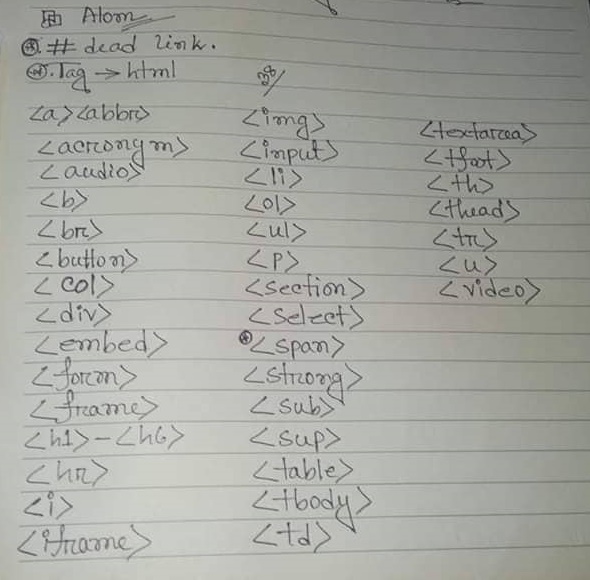 Atom
# dead link.
Tag → html
<a> <abbr>
<acronym>
<audio>
<b>
<br>
<button>
<col>
<div>
<embed>
<form>
<frame>
<h1> - <h6>
<hr>
<i>
<iframe>
<img>
<input>
<li>
<ol>
<ul>
<p>
<section>
<select>
<span>
<strong>
<sub>
<sup>
<table>
<tbody>
<td>
<textarea>
<tfoot>
<th>
<thead>
<tr>
<u>
<video>